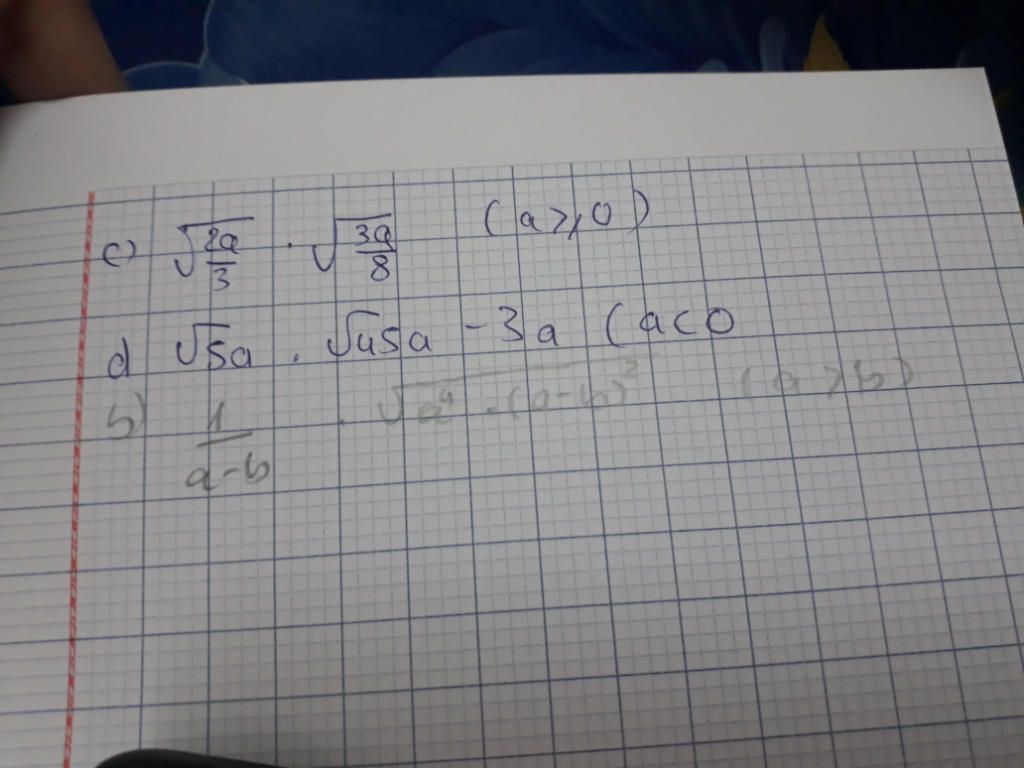 c) √(2a/3) . √(3a/8) (a ≥ 0)
d √5a . √45a - 3a (a < 0
b) 1/(a-b) . √(a⁴ . (a-b)²) (a > b)